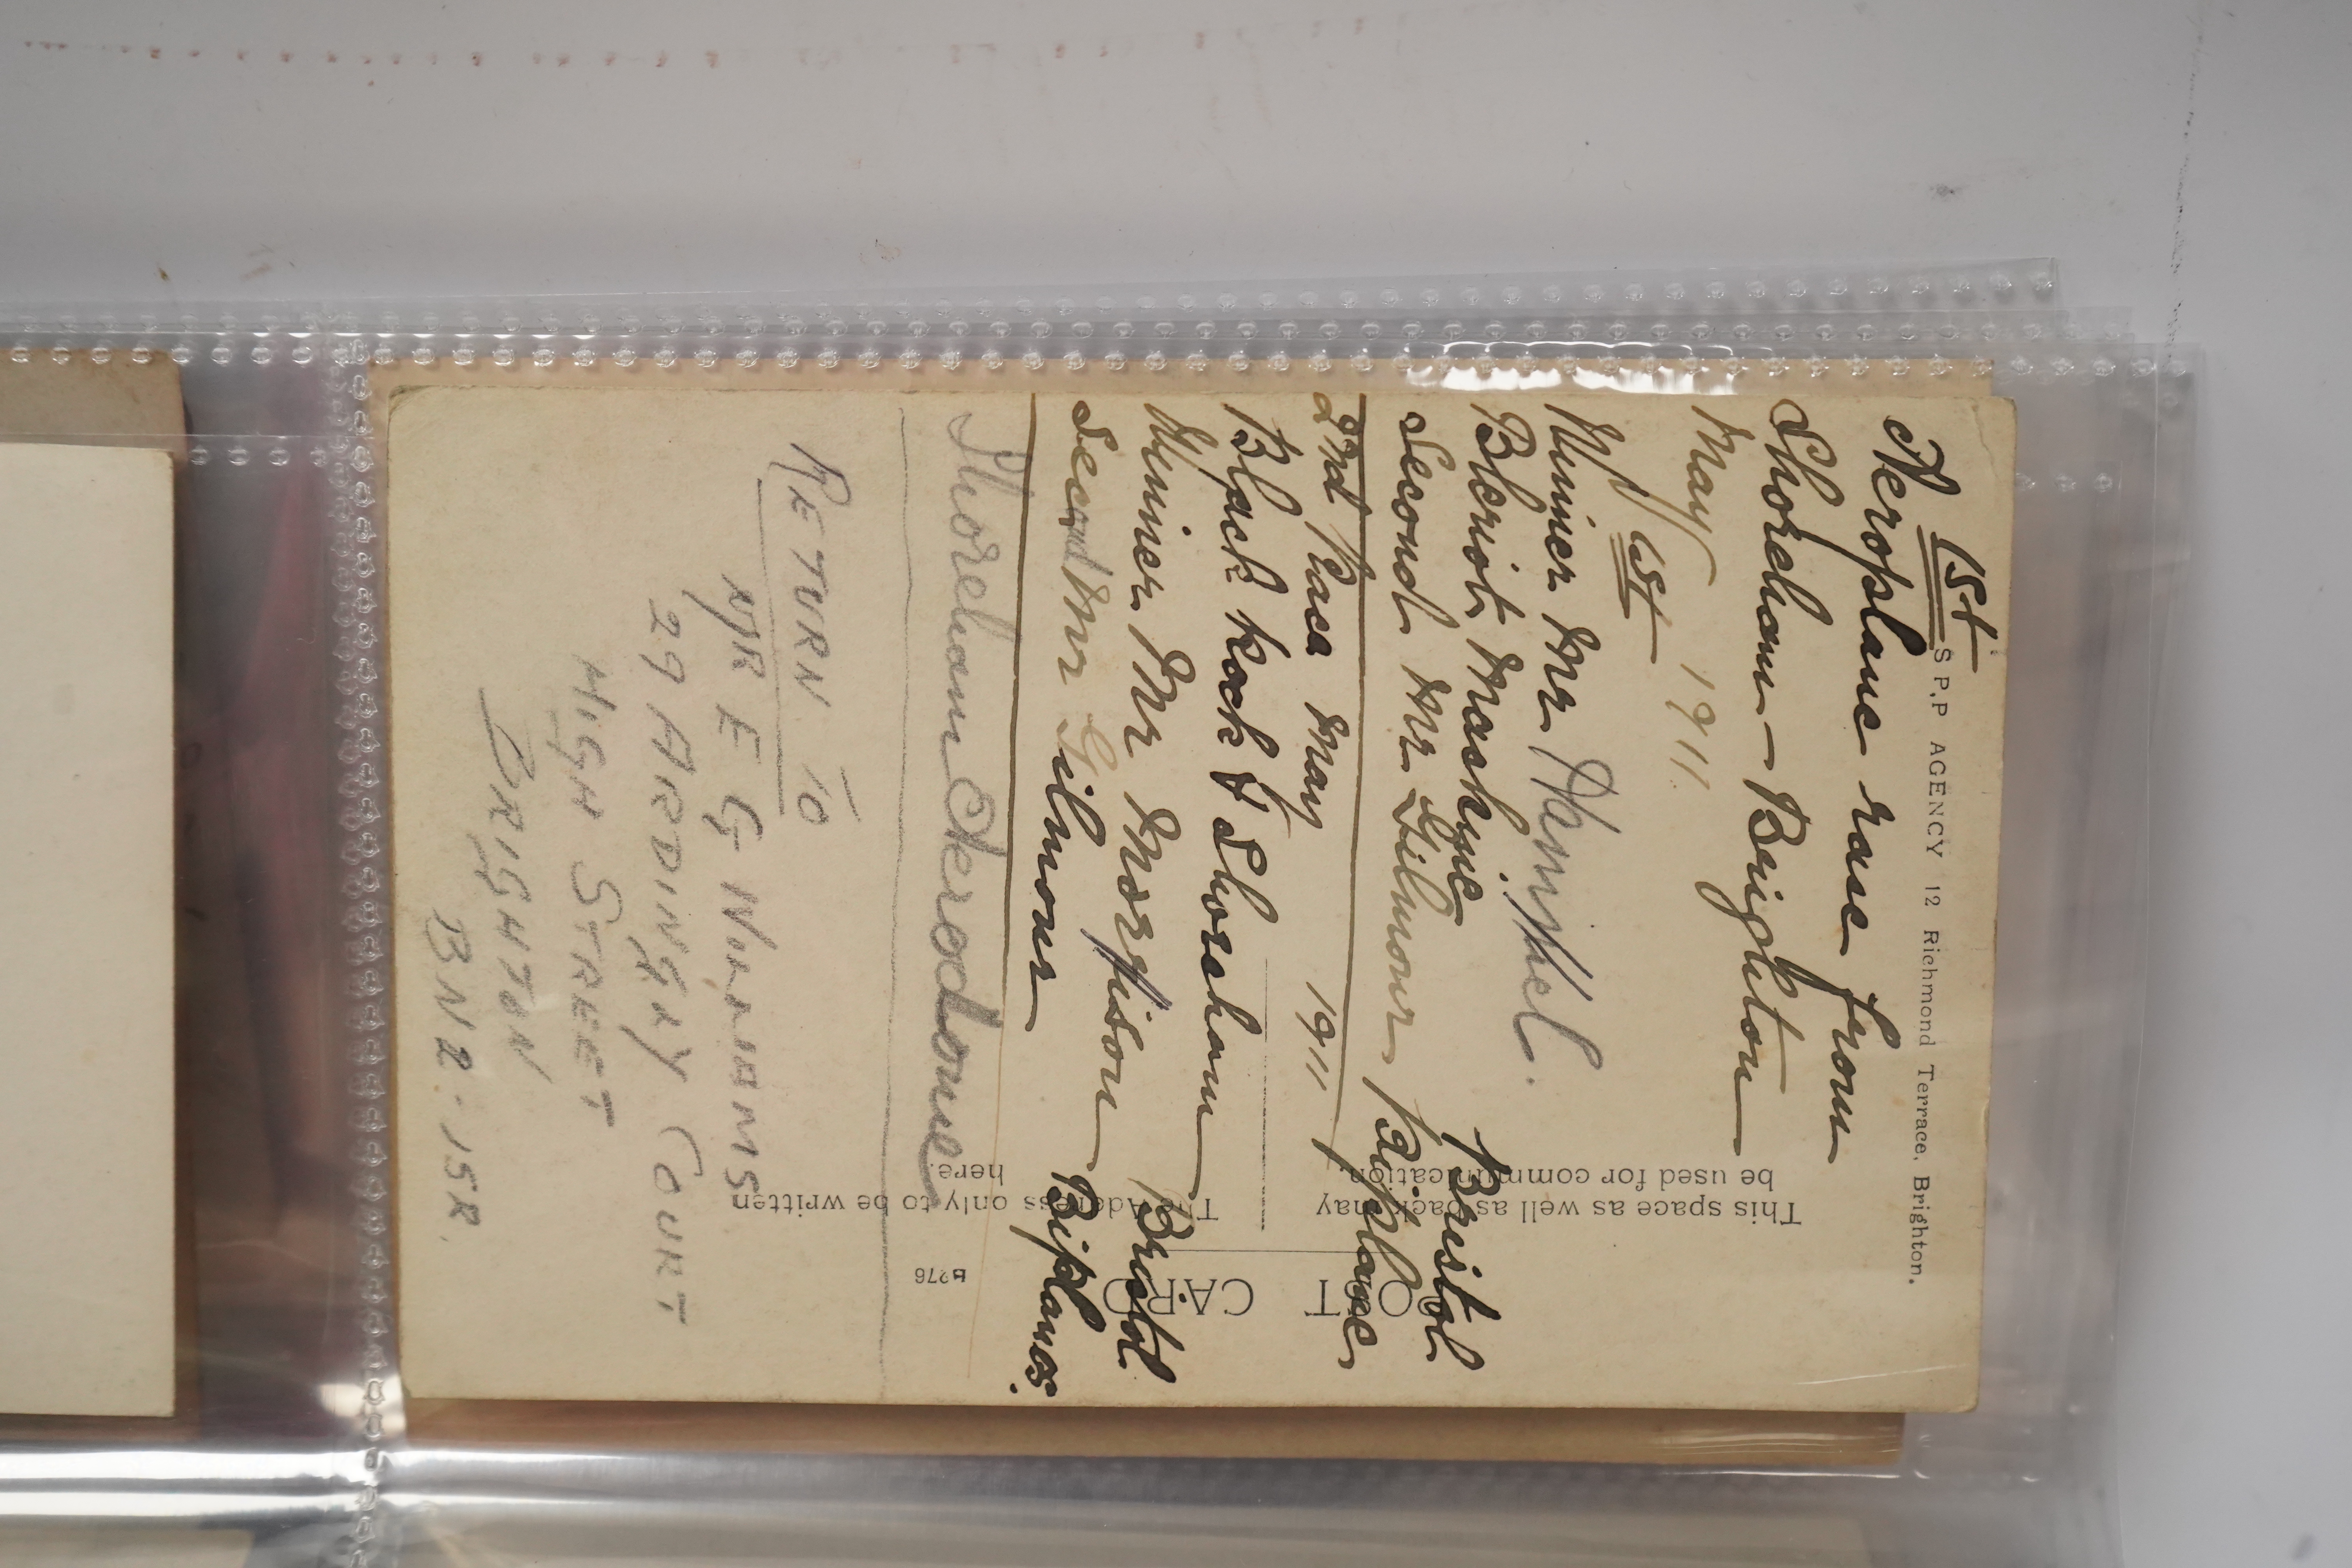 1st
S.P.P AGENCY 12 Richmond Terrace, Brighton.
Aeroplane race from
Shoreham - Brighton
May 1911
1st
Winner Mr Hamel.
Bleriot Mashine
Second Mr Gilmour Bristol
Biplane
2nd Race May 1911
Black Rock & Shoreham
Winner Mr Morrison Bristol
Second Mr Gilmour Biplanes.
Shoreham Aerodome
RETURN TO
MR E G NORMAMS
29 ARDINGLY COURT
HIGH STREET
BRIGHTON
BN2 : 15R.
POST CARD
This space as well as back may
be used for communication.
The Address only to be written
here.